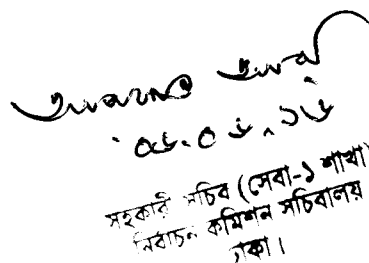 ০৮.০৮.১৬
সহকারী সচিব (সেবা-১ শাখা)
নির্বাচন কমিশন সচিবালয়
ঢাকা।